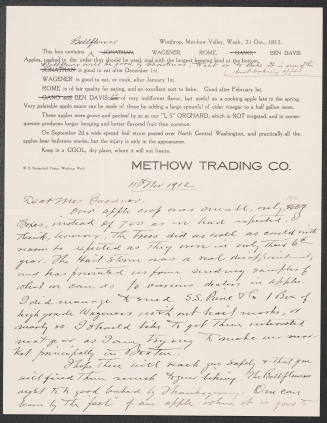 Bellflower Winthrop, Methow Valley, Wash., 21 Oct., 1912.
This box contains JONATHAN, WAGENER, ROME, GANO, BEN DAVIS
Apples, packed in the order they should be used, and with the longest keeping kind at the bottom.
JONATHAN is good to eat after December 1st.
WAGENER is good to eat, or cook, after January 1st.
ROME is of fair quality for eating, and an excellent sort to bake. Good after February 1st.
GANO and BEN DAVIS are of very indifferent flavor, but useful as a cooking apple late in the spring.
Very palatable apple sauce can be made of these by adding a large spoonful of cider vinegar to a half gallon more.
These apples were grown and packed by us at our "L 5" ORCHARD, which is NOT irrigated, and in conse-
quence produces longer keeping and better flavored fruit than common.
On September 2d a wide spread hail storm passed over North Central Washington, and practically all the
apples bear hailstone marks, but the injury is only in the appearance.
Keep in a COOL, dry place, where it will not freeze.
METHOW TRADING CO.
11th Nov 1912
Dear Mrs. Gardner.
Our apple crop was small, only
Boxes, instead of 700 as we had expected. I
think, however, the trees did as well as could with
reason be expected as they were in only their 6th
year. The Hail Storm was a real disappointment,
and has prevented us from sending samples of
what we can do to various dealers in apples.
I did manage to send S.S. Pierce & Co 1 Box of
high grade Wageners without hail marks, or
nearly so. I should like to get them interested
next year as I am trying to make our mar-
ket principally in Boston.
I hope these will reach you safely & that you
will find them much to your liking. The Bellflowers
ought to be good baked by Thanksgiving. One can
learn by the "feel" of an apple when it is good to